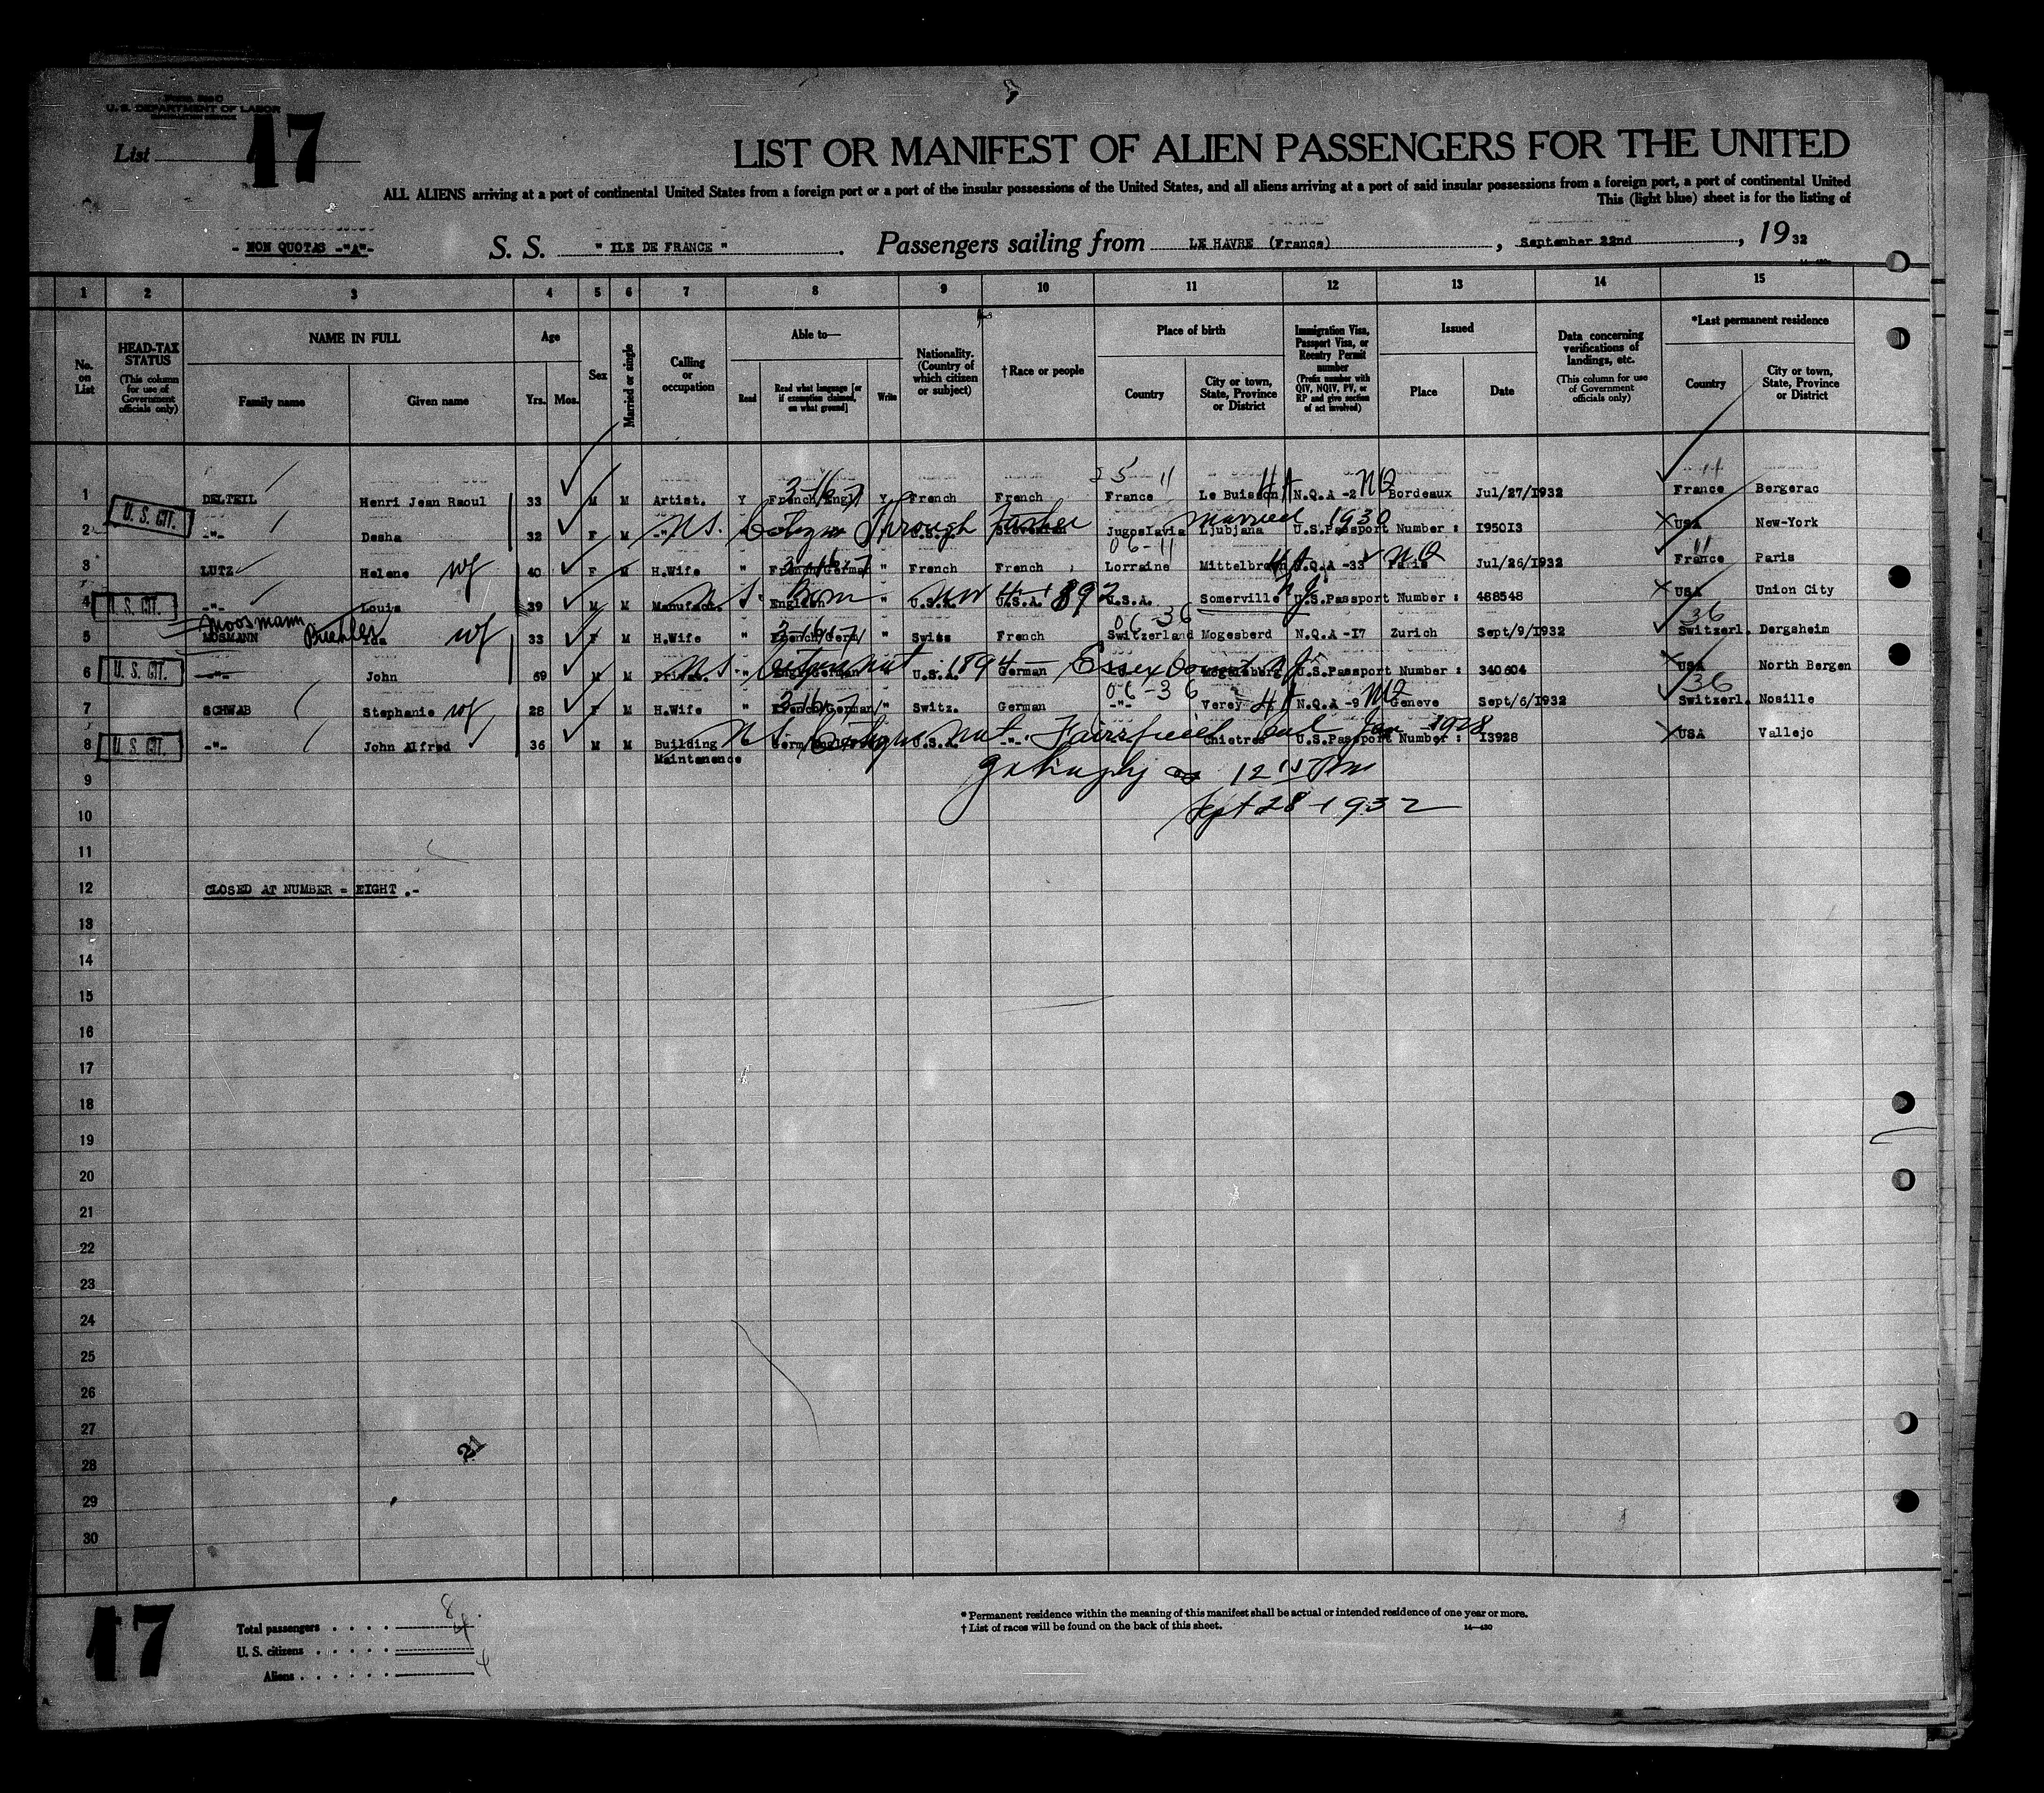 U. S. DEPARTMENT OF LABOR
List 17
LIST OR MANIFEST OF ALIEN PASSENGERS FOR THE UNITED
ALL ALIENS arriving at a port of continental United States from a foreign port or a port of the insular possessions of the United States, and all aliens arriving at a port of said insular possessions from a foreign port, a port of continental United
This (light blue) sheet is for the listing of
- NON QUOTAS -"A"- S. S. " ILE DE FRANCE " . Passengers sailing from LE HAVRE (France) , September 22nd , 19 32
1 2 3 4 5 6 7 8 9 10 11 12 13 14 15
No. on List
HEAD-TAX STATUS (This column for use of Government officials only)
NAME IN FULL Family name Given name
Age Yrs. Mos.
Sex
Married or single
Calling or occupation
Able to— Read Read what language [or if exemption claimed, on what ground] Write
Nationality. (Country of which citizen or subject)
† Race or people
Place of birth Country City or town, State, Province or District
Immigration Visa, Passport Visa, or Reentry Permit number (Prefix number with QIV, NQIV, PV, or RP and give section of act involved)
Issued Place Date
Data concerning verifications of landings, etc. (This column for use of Government officials only)
*Last permanent residence Country City or town, State, Province or District
3-16-7 25 11 NQ 11
1 DELTEIL Henri Jean Raoul 33 M M Artist. Y French/Engl/ Y French French France Le Buisson N.Q.A -2 Bordeaux Jul/27/1932 France Bergerac
U. S. CIT. NS. Citizen Through Father married 1930
2 -"- Desha 32 F M -"- U.S.A. Slovenian Jugoslavia Ljubjana U.S.Passport Number : 195013 USA New-York
06-11 NQ 11
3 LUTZ Helene wf 40 F M H.Wife " French/German " French French Lorraine Mittelbronn N.Q.A -33 Paris Jul/26/1932 France Paris
U. S. CIT. NS. Born 1892 NJ
4 -"- Louis 39 M M Manufact. " English " U.S.A. U.S.A. U.S.A. Somerville U.S.Passport Number : 468548 USA Union City
Moosmann 3-16-7 06-36 36
5 MOSMANN Ida wf 33 F M H.Wife " French/Germ/ " Swiss French Switzerland Mogesberd N.Q.A -17 Zurich Sept/9/1932 Switzerl. Dergsheim
U. S. CIT. NS. Citizen nat 1894 Essex County NJ
6 -"- John 69 M M " Engl/German " U.S.A. German U.S.Passport Number : 340604 USA North Bergen
3-16-7 06-36 NQ 36
7 SCHWAB Stephanie wf 28 F M H.Wife " French/German/ " Switz. German -"- Verey N.Q.A -9 Geneve Sept/6/1932 Switzerl. Nosille
U. S. CIT. NS. Citizen nat. Fairfield Cal Jan 1928
8 -"- John Alfred 36 M M Building Maintenence U.S.A. -"- Chietres U.S.Passport Number : 13928 USA Vallejo
9
12 15 Pm
10
Sept 28-1932
11
12 CLOSED AT NUMBER = EIGHT .-
13
14
15
16
17
18
19
20
21
22
23
24
25
26
27
28
21
29
30
17
Total passengers . . . . 8
U. S. citizens . . . . . 4
Aliens . . . . . . 4
* Permanent residence within the meaning of this manifest shall be actual or intended residence of one year or more.
† List of races will be found on the back of this sheet. 14—430